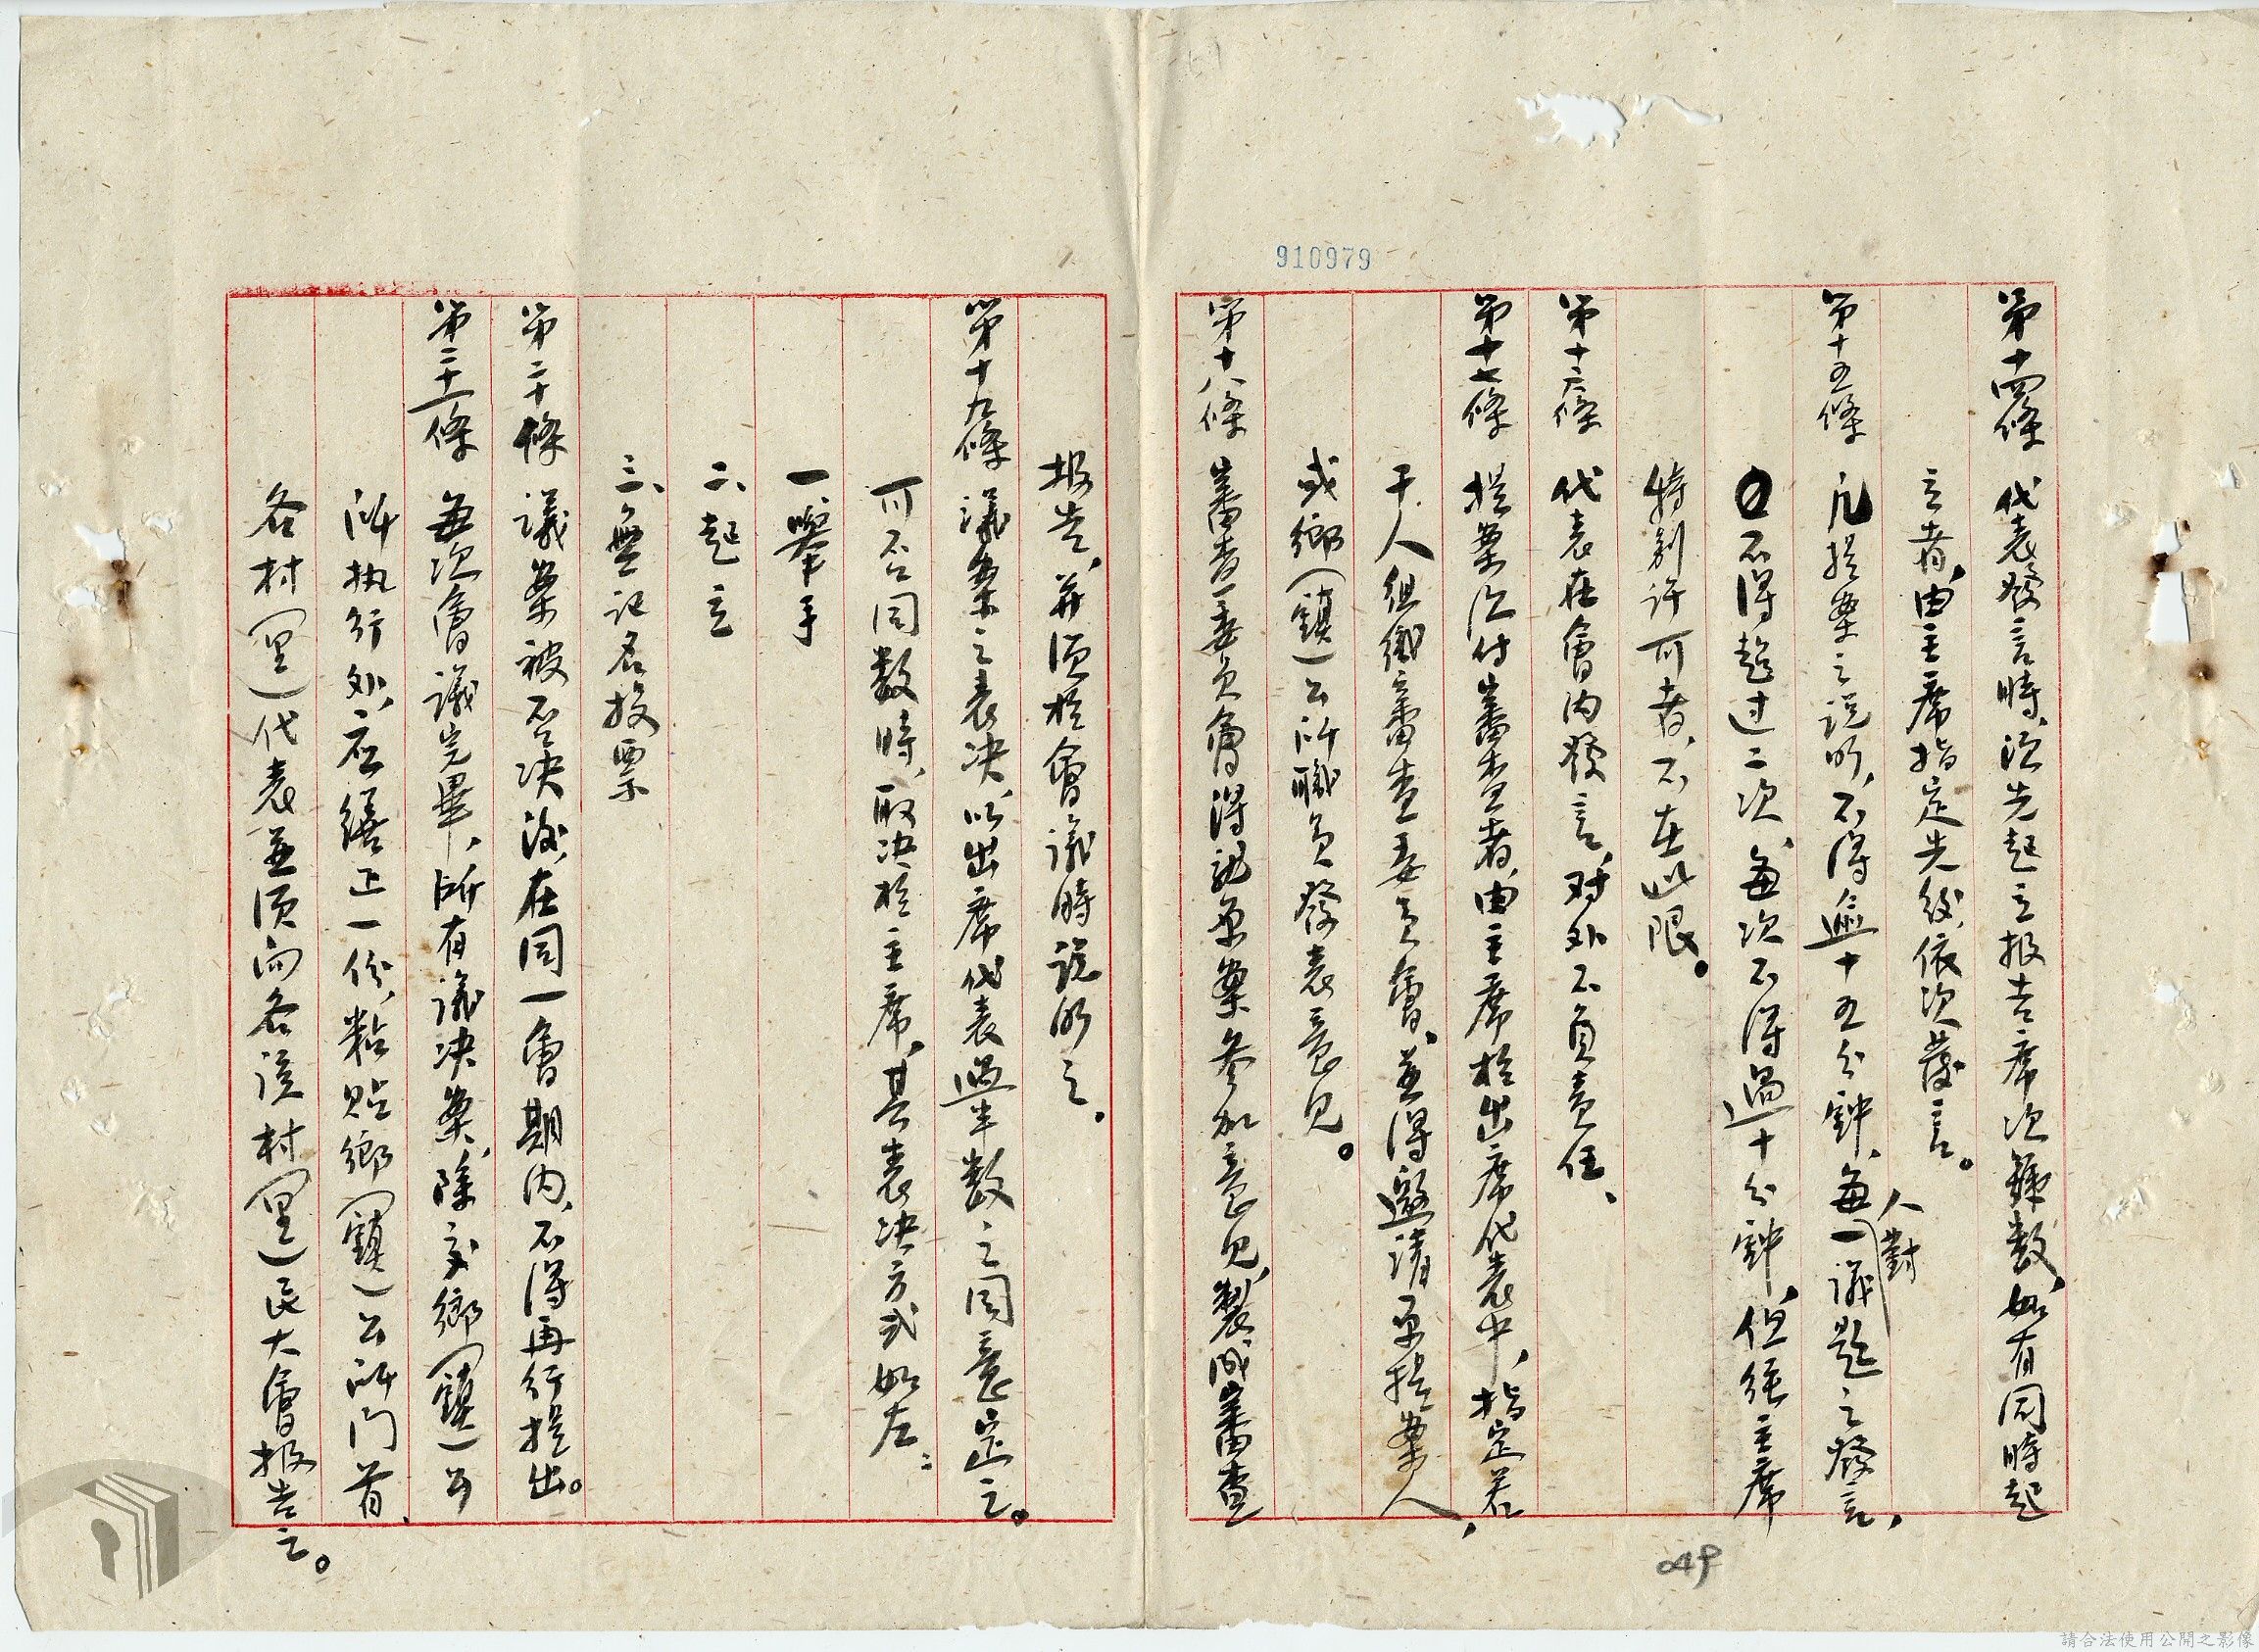 910979
第十四條 代表發言時、須先起立报告席次號数、如有同時起
立者、由主席指定先後、依次發言。
第十五條 凡提案之說明、不得逾十五分鐘、每人對一議題之發言、
不得超过二次、每次不得過十分鐘、但經主席
特别许可者、不在此限。
第十六條 代表在會內發言、对外不負責任、
第十七條 提案須付審查者、由主席於出席代表中、指定若
干人組織審查委員會、並得邀請原提案人、
或鄉（鎮）公所職員發表意見。
第十八條 審查委員會得就原案參加意見、製成審查
报告、并須於會議時說明之。
第十九條 議案之表决、以出席代表過半数之同意定之。
可否同数時、取决於主席、其表决方式如左：
一、舉手
二、起立
三、無记名投票
第二十條 議案被否决後、在同一會期内、不得再行提出。
第二十一條 每次會議完畢、所有議决案、除交鄉（鎮）公
所执行外、应繕正一份、粘貼鄉（鎮）公所门首、
各村（里）代表並須向各该村（里）民大會报告之。
049
請合法使用公開之影像